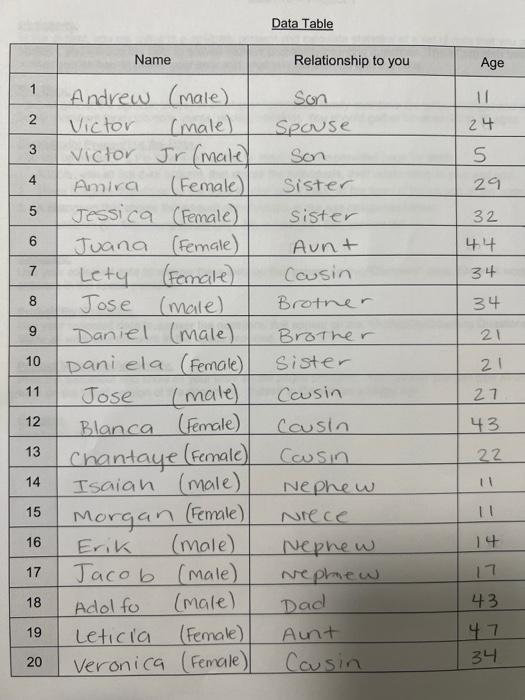 Data Table
Name Relationship to you Age
1 Andrew (male) Son 11
2 Victor (male) Spouse 24
3 Victor Jr (male) Son 5
4 Amira (Female) Sister 29
5 Jessica (Female) Sister 32
6 Juana (Female) Aunt 44
7 Lety (Female) Cousin 34
8 Jose (male) Brother 34
9 Daniel (male) Brother 21
10 Daniela (Female) Sister 21
11 Jose (male) Cousin 27
12 Blanca (Female) Cousin 43
13 Chantaye (Female) Cousin 22
14 Isaiah (male) Nephew 11
15 Morgan (Female) Niece 11
16 Erik (male) Nephew 14
17 Jacob (male) Nephew 17
18 Adolfo (male) Dad 43
19 Leticia (Female) Aunt 47
20 Veronica (Female) Cousin 34